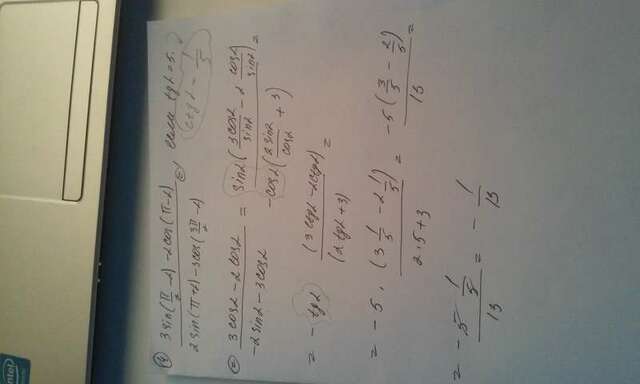 intel
④ (3 sin(π/2 - α) - 2 cos(π - α)) / (2 sin(π + α) - 3 cos(3π/2 - α)) =, если tgα = 5.
ctgα - 1/5
= (3 cosα - 2 cosα) / (-2 sinα - 3 cosα) = sinα (3cosα/sinα - 2 cosα/sinα) / -cosα (2 sinα/cosα + 3) =
= - tgα (3 ctgα - 2ctgα) / (2 tgα + 3) =
= - 5 · (3 1/5 - 2 1/5) / (2·5+3) = -5 (3/5 - 2/5) / 13 =
= - 5 1/5 / 13 = - 1/13